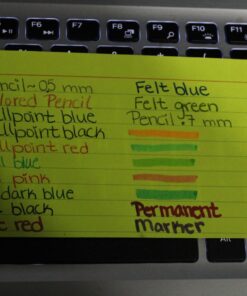 F6 F7 F8 F9 F10 F11
ncil~0.5 mm
lored Pencil
llpoint blue
llpoint black
llpoint red
blue
pink
dark blue
black
red
Felt blue
Felt green
Pencil~.7 mm
Permanent
Marker